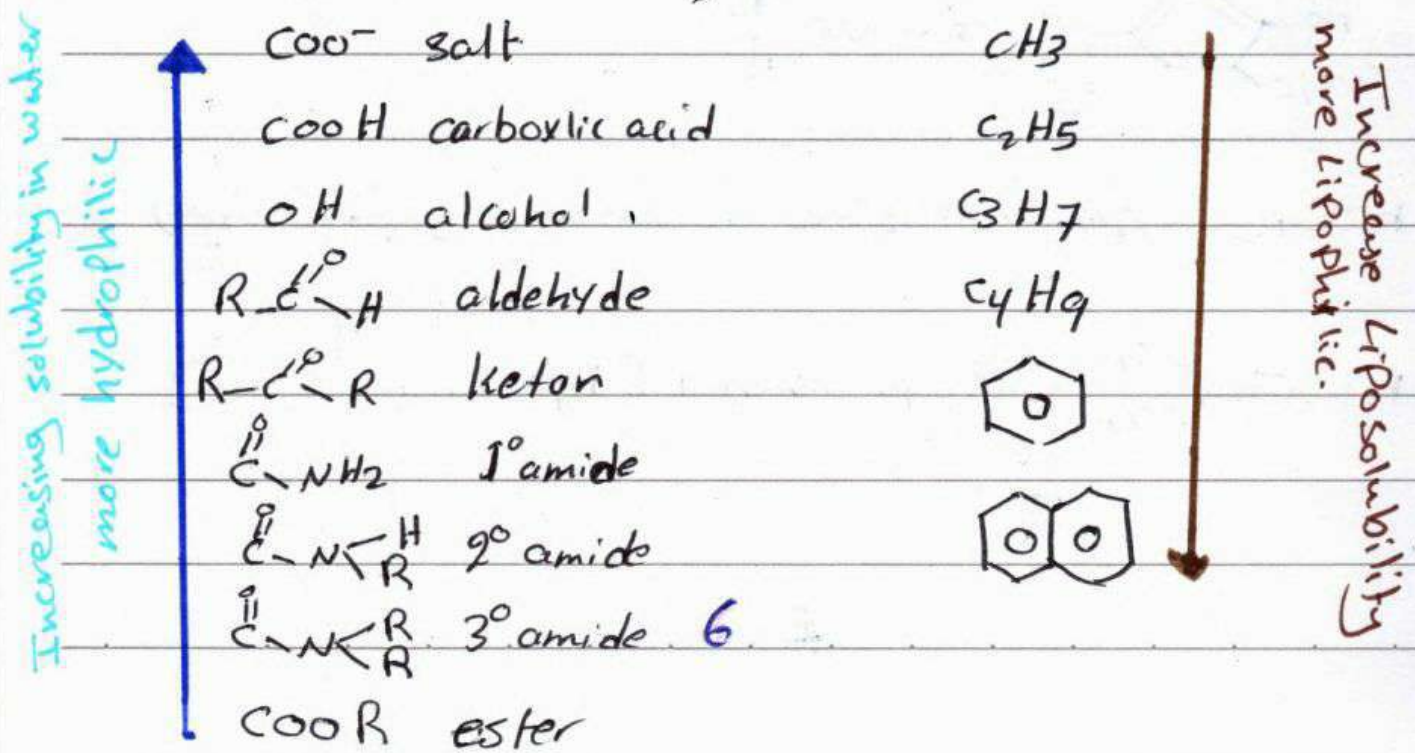 Increasing solubility in water
more hydrophilic
COO⁻ salt
COOH carboxlic acid
OH alcohol.
R-C(=O)-H aldehyde
R-C(=O)-R keton
C(=O)-NH2 1° amide
C(=O)-N<H R 2° amide
C(=O)-N<R R 3° amide 6
COOR ester
CH3
C2H5
C3H7
C4H9
Increase Liposolubility
more Lipophilic.